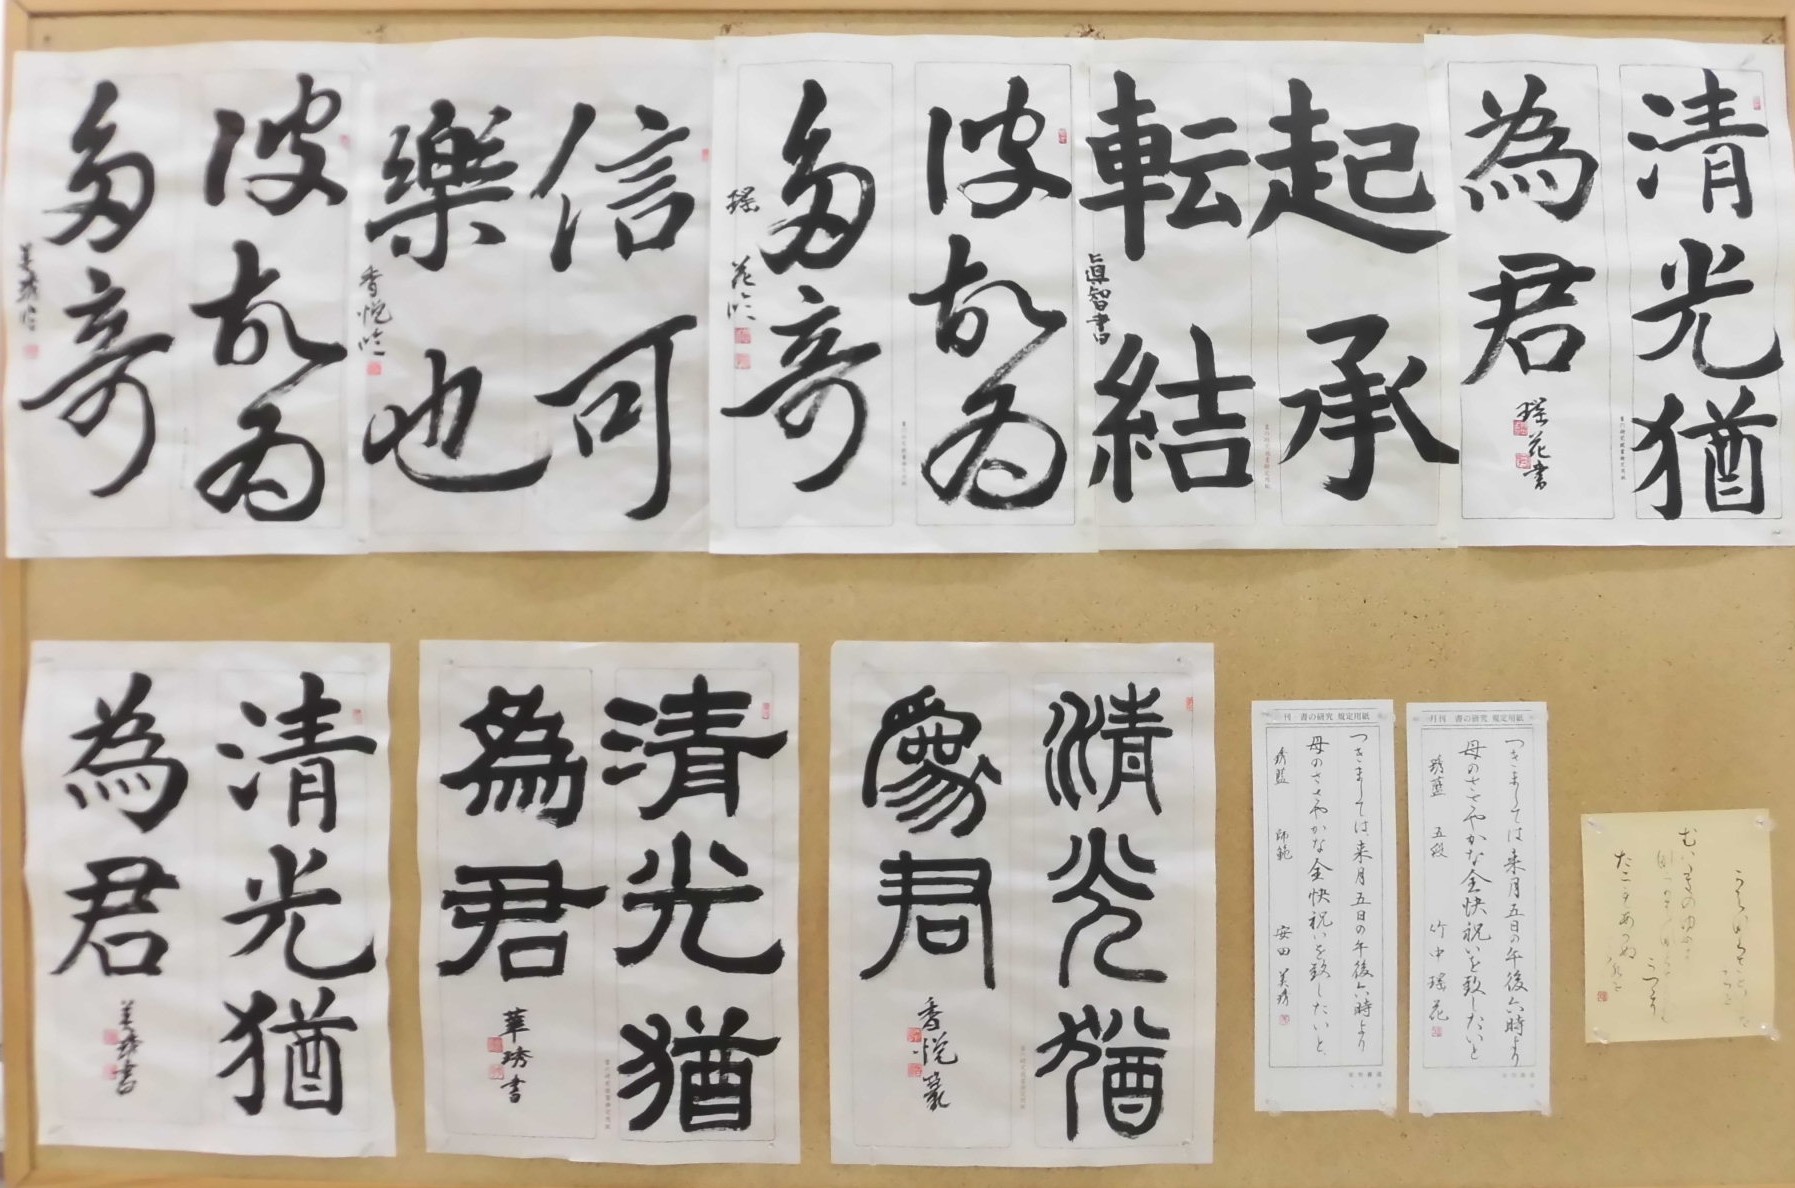 清光猶
為君
瑶花書
起承
転結
眞智書
彼故為
多奇
瑶花臨
信可
樂也
香悦臨
彼故為
多奇
美琇臨
清光猶
為君
美琇書
清光猶
為君
華琇書
清光猶
為君
香悦篆
月刊 書の研究 規定用紙
つきましては来月五日の午後六時より
母のささやかな全快祝いを致したいと
五段 竹中 瑶花
刊 書の研究 規定用紙
つきましては、来月五日の午後六時より
母のささやかな全快祝いを致したいと、
師範 安田 美琇